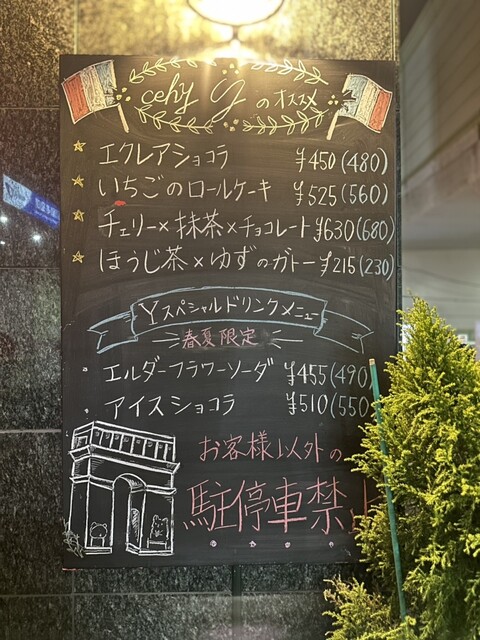 cehy yのオススメ
エクレアショコラ ¥450(480)
いちごのロールケーキ ¥525(560)
チェリー×抹茶×チョコレート ¥630(680)
ほうじ茶×ゆずのガトー ¥215(230)
Yスペシャルドリンクメニュー
春夏限定
・エルダーフラワーソーダ ¥455(490)
・アイスショコラ ¥510(550)
お客様以外の
駐停車禁止